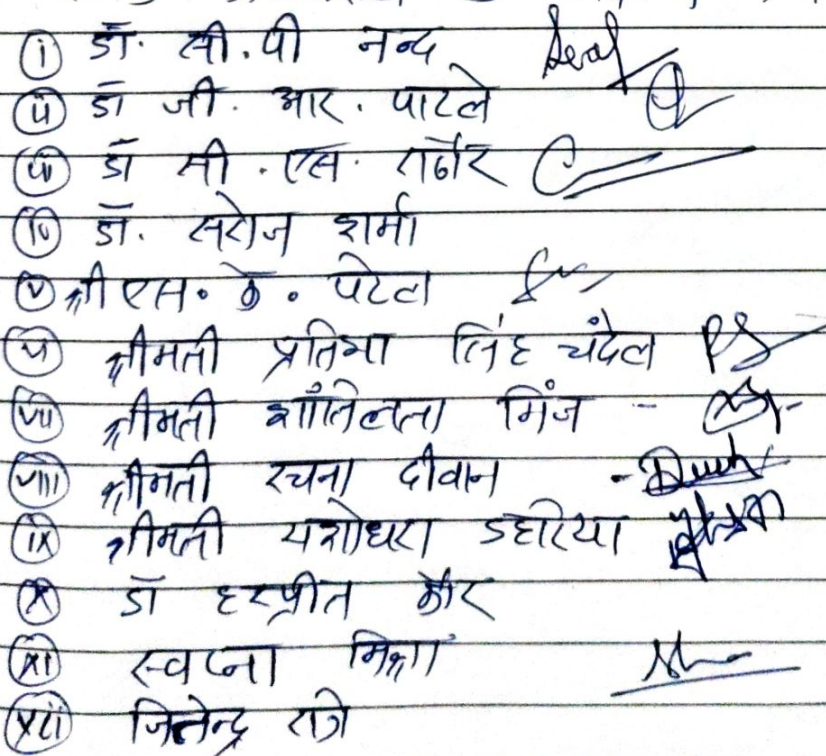 i डॉ. सी.पी नन्द
ii डॉ जी. आर. पाटले
iii डॉ सी. एस. राठौर
iv डॉ. सरोज शर्मा
v श्री एस. के. पटेल
vi श्रीमती प्रतिमा सिंह चंदेल PS
vii श्रीमती शाँतिलता मिंज -
viii श्रीमती रचना दीवान -
ix श्रीमती यशोधरा डहरिया
x डॉ हरप्रीत कौर
xi स्वप्ना मिश्रा
xii जितेन्द्र रात्रे